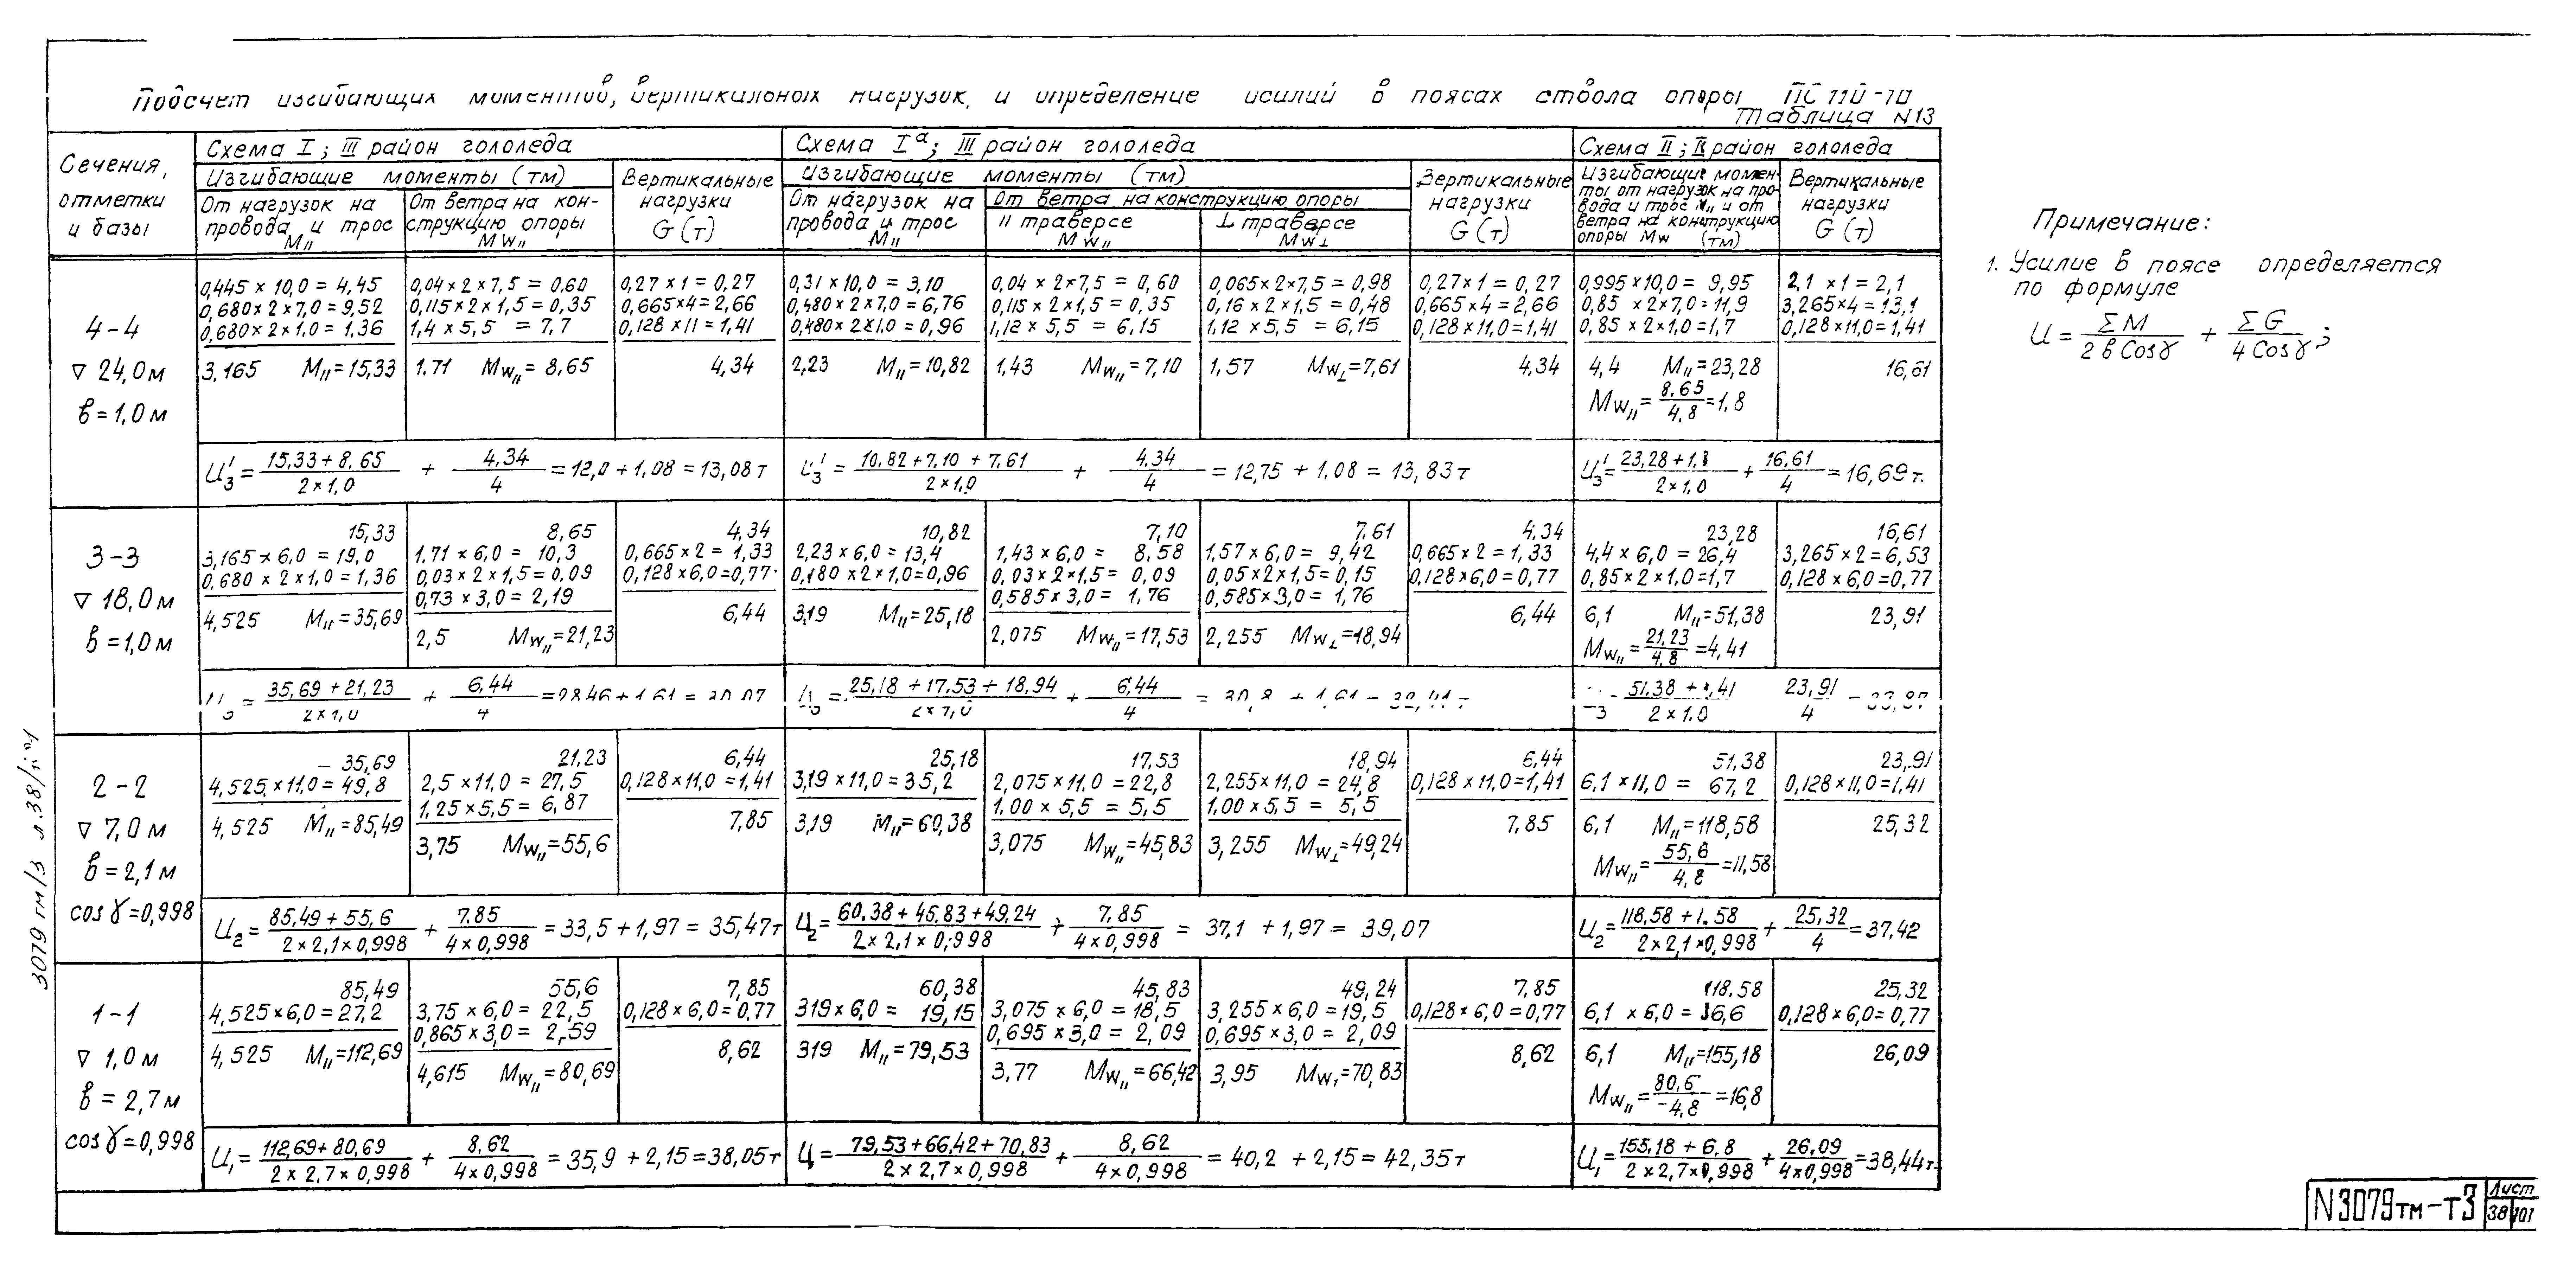 Подсчет изгибающих моментов, вертикальных нагрузок и определение усилий в поясах ствола опоры ПС 110-10
Таблица N13
Сечения, отметки и базы
Схема I; III район гололеда
Изгибающие моменты (тм)
От нагрузок на провода и трос M//
От ветра на конструкцию опоры Mw//
Вертикальные нагрузки G (т)
Схема Iа; III район гололеда
Изгибающие моменты (тм)
От нагрузок на провода и трос M//
От ветра на конструкцию опоры
// траверсе Mw//
⊥ траверсе Mw⊥
Вертикальные нагрузки G (т)
Схема II; IV район гололеда
Изгибающие моменты от нагрузок на провода и трос M// и от ветра на конструкцию опоры Mw (тм)
Вертикальные нагрузки G (т)
4-4
▽ 24,0 м
в = 1,0 м
0,445 × 10,0 = 4,45
0,680 × 2 × 7,0 = 9,52
0,680 × 2 × 1,0 = 1,36
3,165 M// = 15,33
0,04 × 2 × 7,5 = 0,60
0,115 × 2 × 1,5 = 0,35
1,4 × 5,5 = 7,7
1.71 Mw// = 8,65
0,27 × 1 = 0,27
0,665 × 4 = 2,66
0,128 × 11 = 1,41
4,34
0,31 × 10,0 = 3,10
0,480 × 2 × 7,0 = 6,76
0,480 × 2 × 1,0 = 0,96
2,23 M// = 10,82
0,04 × 2 × 7,5 = 0,60
0,115 × 2 × 1,5 = 0,35
1,12 × 5,5 = 6,15
1,43 Mw// = 7,10
0,065 × 2 × 7,5 = 0,98
0,16 × 2 × 1,5 = 0,48
1,12 × 5,5 = 6,15
1,57 Mw⊥ = 7,61
0,27 × 1 = 0,27
0,665 × 4 = 2,66
0,128 × 11,0 = 1,41
4,34
0,995 × 10,0 = 9,95
0,85 × 2 × 7,0 = 11,9
0,85 × 2 × 1,0 = 1,7
4,4 M// = 23,28
Mw// = 8,65 / 4,8 = 1,8
2,1 × 1 = 2,1
3,265 × 4 = 13,1
0,128 × 11,0 = 1,41
16,61
U3' = (15,33 + 8,65) / (2 × 1,0) + 4,34 / 4 = 12,0 + 1,08 = 13,08 т
U3' = (10,82 + 7,10 + 7,61) / (2 × 1,0) + 4,34 / 4 = 12,75 + 1,08 = 13,83 т
U3' = (23,28 + 1,8) / (2 × 1,0) + 16,61 / 4 = 16,69 т.
3-3
▽ 18,0 м
в = 1,0 м
15,33
3,165 × 6,0 = 19,0
0,680 × 2 × 1,0 = 1,36
4,525 M// = 35,69
8,65
1,71 × 6,0 = 10,3
0,03 × 2 × 1,5 = 0,09
0,73 × 3,0 = 2,19
2,5 Mw// = 21,23
4,34
0,665 × 2 = 1,33
0,128 × 6,0 = 0,77
6,44
10,82
2,23 × 6,0 = 13,4
0,180 × 2 × 1,0 = 0,96
3,19 M// = 25,18
7,10
1,43 × 6,0 = 8,58
0,03 × 2 × 1,5 = 0,09
0,585 × 3,0 = 1,76
2,075 Mw// = 17,53
7,61
1,57 × 6,0 = 9,42
0,05 × 2 × 1,5 = 0,15
0,585 × 3,0 = 1,76
2,255 Mw⊥ = 18,94
4,34
0,665 × 2 = 1,33
0,128 × 6,0 = 0,77
6,44
23,28
4,4 × 6,0 = 26,4
0,85 × 2 × 1,0 = 1,7
6,1 M// = 51,38
Mw// = 21,23 / 4,8 = 4,41
16,61
3,265 × 2 = 6,53
0,128 × 6,0 = 0,77
23,91
(35,69 + 21,23) / (2 × 1,0) + 6,44 / 4
(25,18 + 17,53 + 18,94) / (2 × 1,0) + 6,44 / 4
51,38 / (2 × 1,0) 23,91 / 4
2-2
▽ 7,0 м
в = 2,1 м
cos γ = 0,998
35,69
4,525 × 11,0 = 49,8
4,525 M// = 85,49
21,23
2,5 × 11,0 = 27,5
1,25 × 5,5 = 6,87
3,75 Mw// = 55,6
6,44
0,128 × 11,0 = 1,41
7,85
25,18
3,19 × 11,0 = 35,2
3,19 M// = 60,38
17,53
2,075 × 11,0 = 22,8
1,00 × 5,5 = 5,5
3,075 Mw// = 45,83
18,94
2,255 × 11,0 = 24,8
1,00 × 5,5 = 5,5
3,255 Mw⊥ = 49,24
6,44
0,128 × 11,0 = 1,41
7,85
51,38
6,1 × 11,0 = 67,2
6,1 M// = 118,58
Mw// = 55,6 / 4,8 = 11,58
23,91
0,128 × 11,0 = 1,41
25,32
U2 = (85,49 + 55,6) / (2 × 2,1 × 0,998) + 7,85 / (4 × 0,998) = 33,5 + 1,97 = 35,47 т
U2 = (60,38 + 45,83 + 49,24) / (2 × 2,1 × 0,998) + 7,85 / (4 × 0,998) = 37,1 + 1,97 = 39,07
U2 = (118,58 + 1.58) / (2 × 2,1 × 0,998) + 25,32 / 4 = 37,42
1-1
▽ 1,0 м
в = 2,7 м
cos γ = 0,998
85,49
4,525 × 6,0 = 27,2
4,525 M// = 112,69
55,6
3,75 × 6,0 = 22,5
0,865 × 3,0 = 2,59
4,615 Mw// = 80,69
7,85
0,128 × 6,0 = 0,77
8,62
60,38
319 × 6,0 = 19,15
319 M// = 79,53
45,83
3,075 × 6,0 = 18,5
0,695 × 3,0 = 2,09
3,77 Mw// = 66,42
49,24
3,255 × 6,0 = 19,5
0,695 × 3,0 = 2,09
3,95 Mw⊥ = 70,83
7,85
0,128 × 6,0 = 0,77
8,62
118.58
6,1 × 6,0 = 36,6
6,1 M// = 155,18
Mw// = 80,6 / 4,8 = 16,8
25,32
0,128 × 6,0 = 0,77
26,09
U1 = (112,69 + 80,69) / (2 × 2,7 × 0,998) + 8,62 / (4 × 0,998) = 35,9 + 2,15 = 38,05 т
U = (79,53 + 66,42 + 70,83) / (2 × 2,7 × 0,998) + 8,62 / (4 × 0,998) = 40,2 + 2,15 = 42,35 т
U1 = (155,18 + 6,8) / (2 × 2,7 × 0,998) + 26,09 / (4 × 0,998) = 38,44 т.
Примечание:
1. Усилие в поясе определяется
по формуле
U = ΣM / (2 в Cos γ) + ΣG / (4 Cos γ);
N3079тм-т3
Лист
38 101